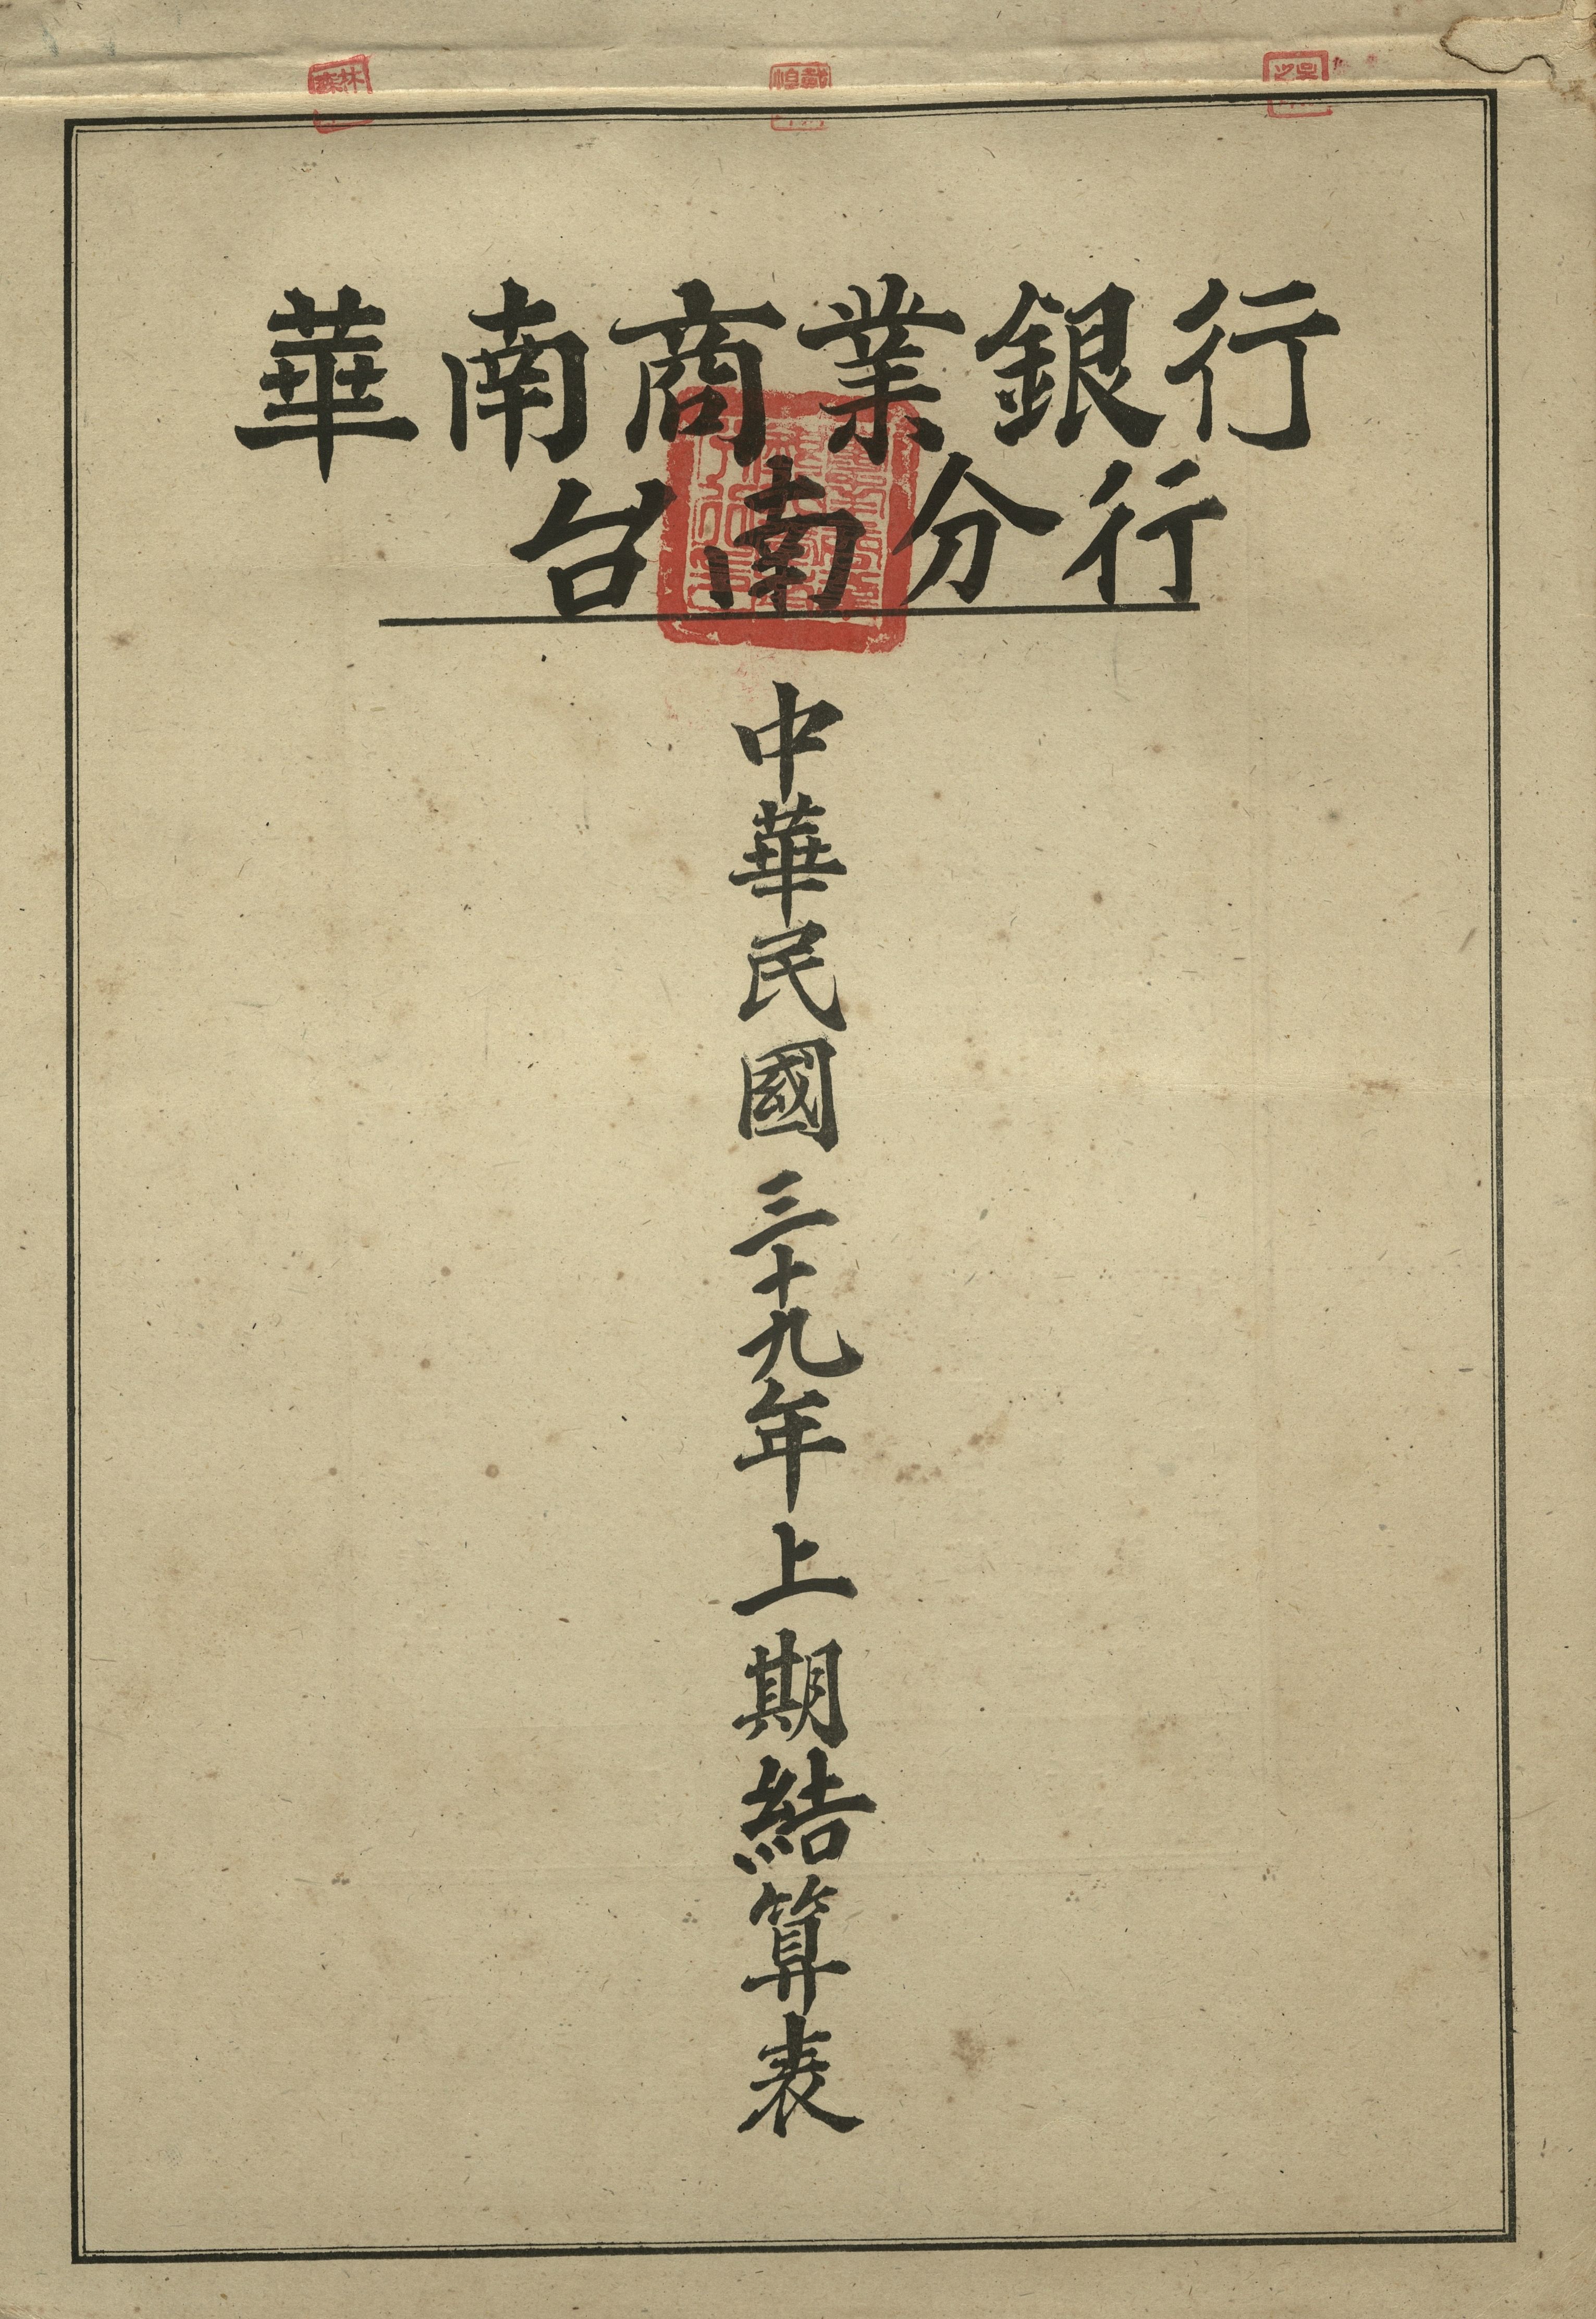 華南商業銀行
台南分行
中華民國三十九年上期結算表